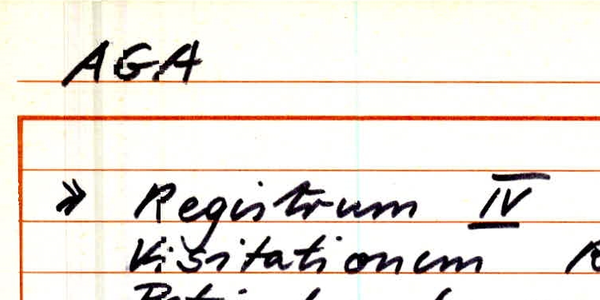 AGA
» Registrum IV
Visitationum